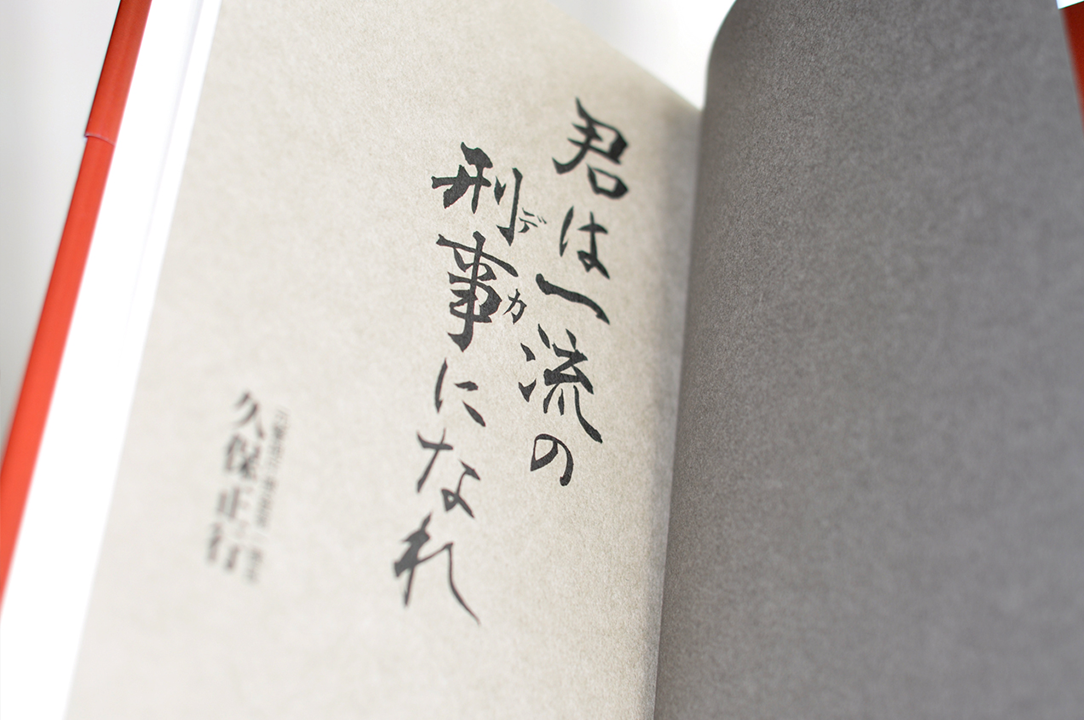 君は一流の
刑事になれ
デカ
久保正行